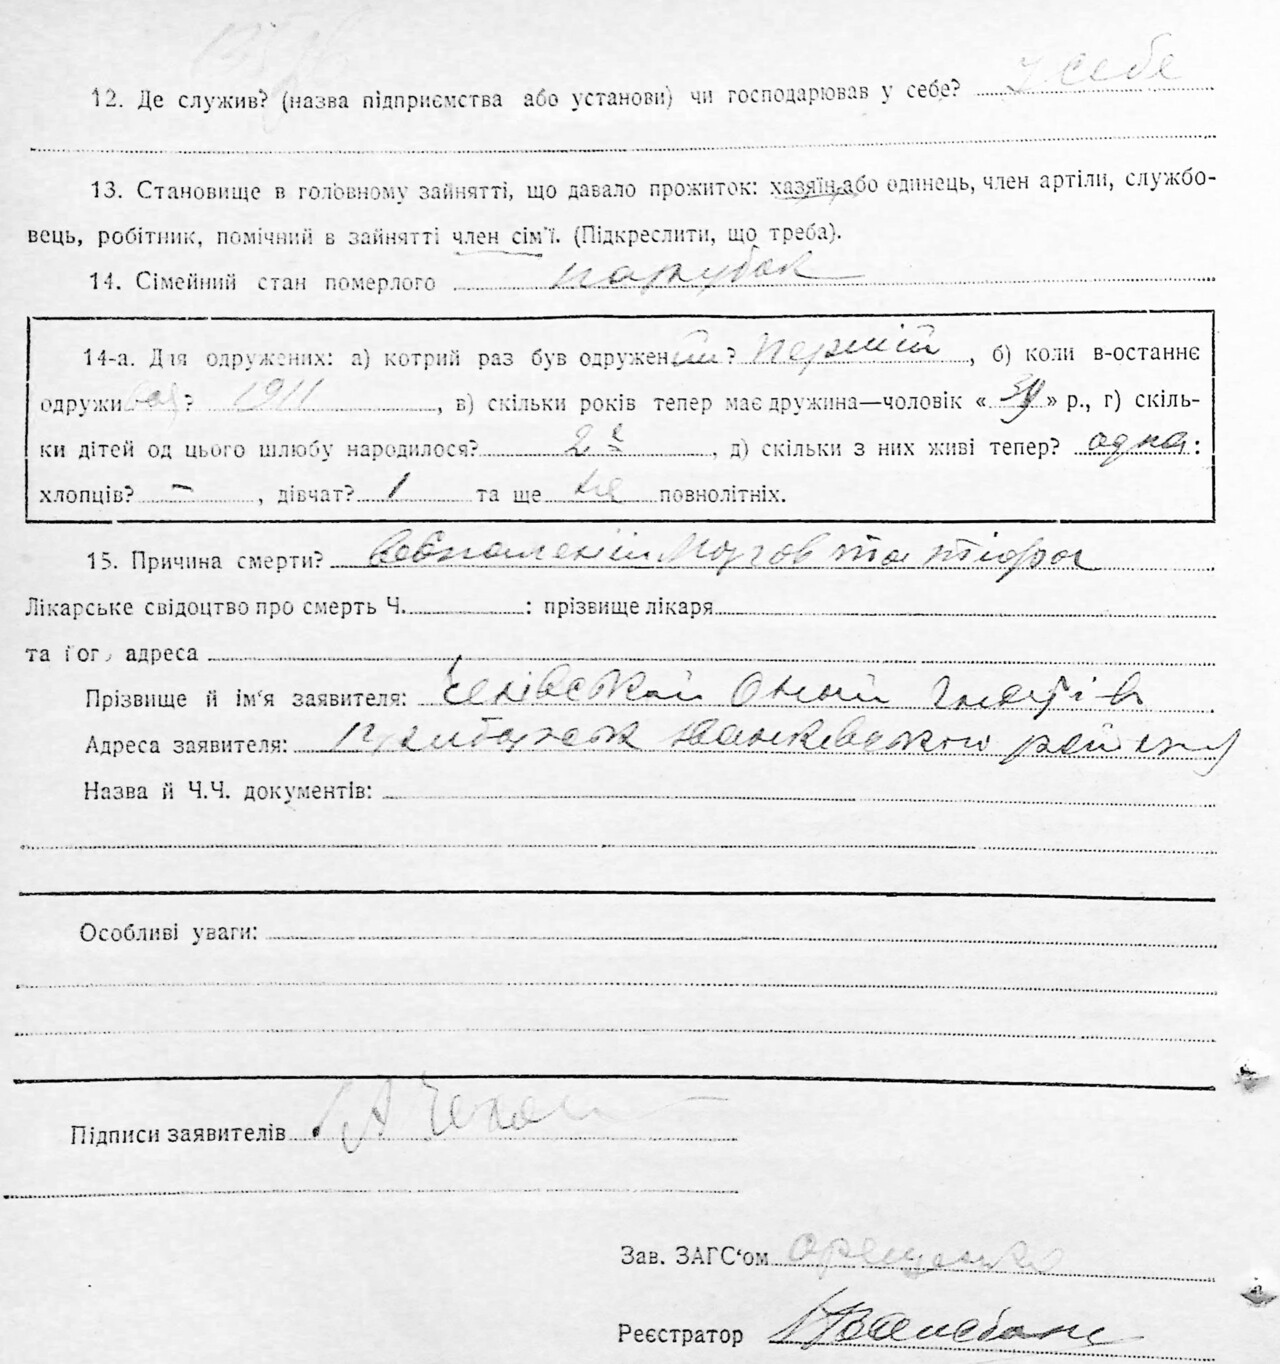 12. Де служив? (назва підприємства або установи) чи господарював у себе? у себе
13. Становище в головному зайнятті, що давало прожиток: хазяїн або одинець, член артілі, службо-
вець, робітник, помічний в зайнятті член сім'ї. (Підкреслити, що треба).
14. Сімейний стан померлого парубок
14-а. Для одружених: а) котрий раз був одружений? перший, б) коли в-останнє
одружився? 1911, в) скільки років тепер має дружина—чоловік « » р., г) скіль-
ки дітей од цього шлюбу народилося? 2, д) скільки з них живі тепер? одна:
хлопців? -, дівчат? 1 та ще не повнолітніх.
15. Причина смерти? та тіфа
Лікарське свідоцтво про смерть Ч. : прізвище лікаря
та його адреса
Прізвище й ім'я заявителя:
Адреса заявителя: району
Назва й Ч.Ч. документів:
Особливі уваги:
Підписи заявителів
Зав. ЗАГС'ом
Реєстратор